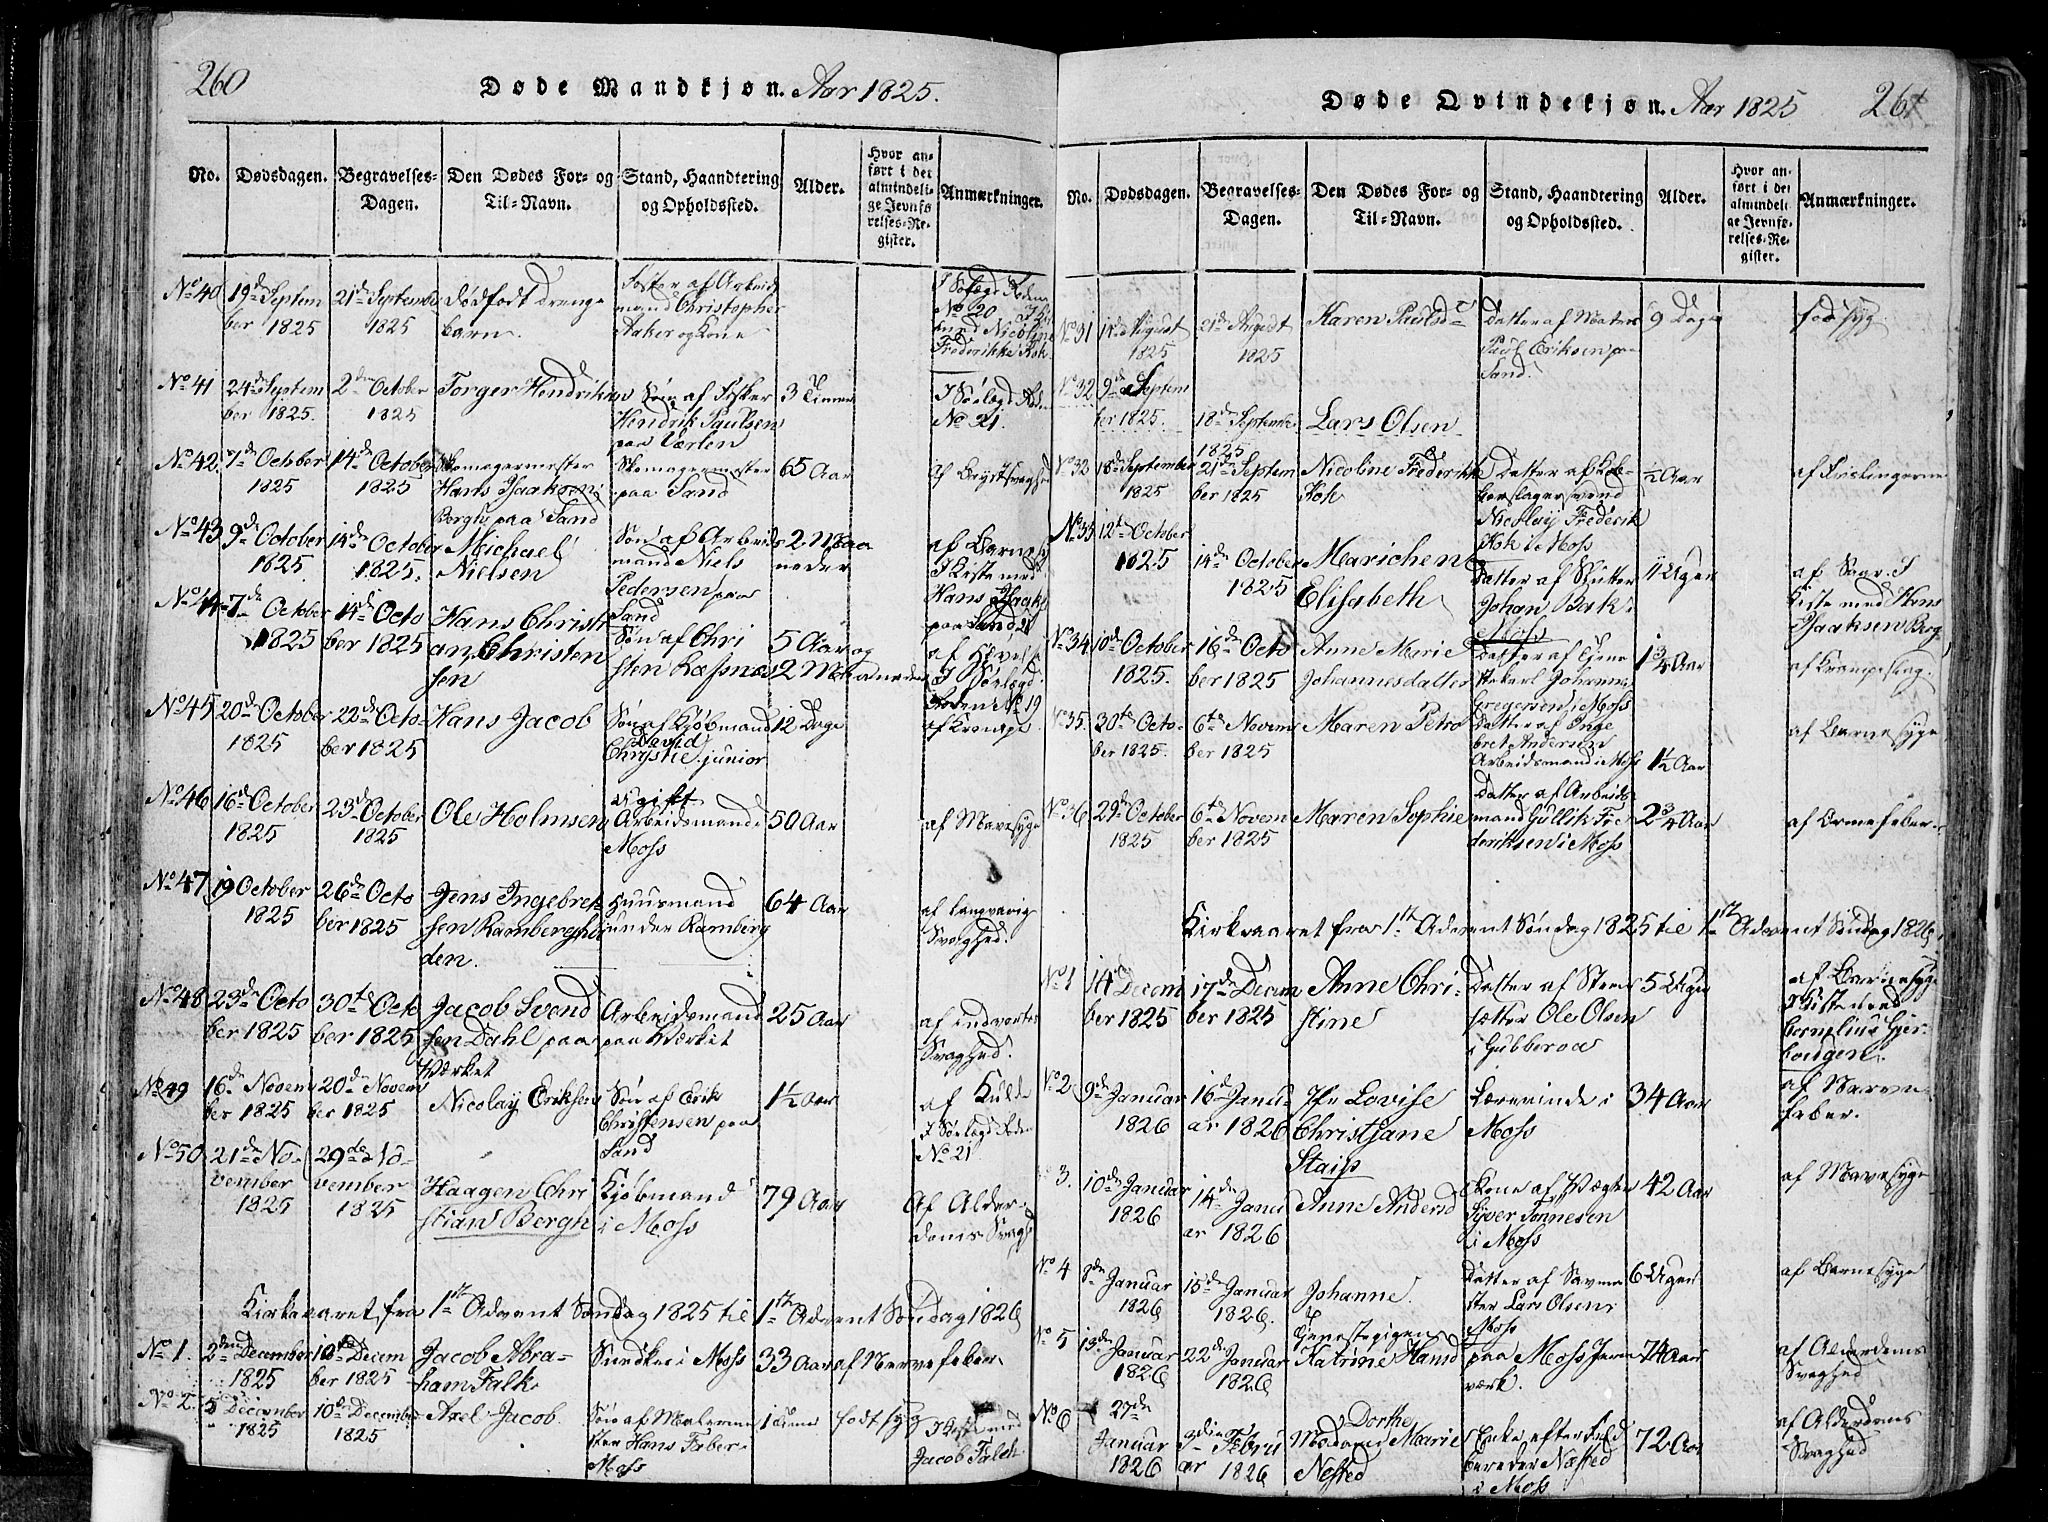 260
Døde Mandkjøn. Aar 1825.
No.
Dødsdagen.
Begravelses-
Dagen.
Den Dødes For- og
Til-Navn.
Stand, Haandtering
og Opholdssted.
Alder.
Hvor an-
ført i det
almindeli-
ge Jevnfø-
relses-Re-
gister.
Anmærkninger.
No 40
19de Septem
ber 1825
21de Septembr
1825
dødfødt drenge
barn.
af Arbeids
mand Christopher
Aaker og Kone
No 20
Frederikke Kok
No 41
24de Septem
ber 1825.
2den October
1825
Torger Hendrik
Søn af Fisker
Hendrik Paulsen
paa Værlen
3 Timer
No 21.
No 42
7de October
1825
14de October
1825
Skomagermester
Hans Isaksen
Bergh paa Sand
Skomagermester
paa Sand
65 Aar
af Brystsvaghed
No 43
9de October
1825.
14de October
1825.
Michael
Nielsen
Søn af Arbeids
mand Niels
Pedersen paa
Sand
2 Maa
neder
I Kiste med
Hans Isaks
paa Sand
No 44
7de October
1825
14de Octo
ber 1825
Hans Christi
an Christen
sen
Søn af Chri
sten Ræfsnæs
5 Aar og
2 Maaneder
No 19
No 45
20de October
1825
22de Octo-
ber 1825
Hans Jacob
Søn af Kjøbmand
David
Chrystie junior
12 Dage
af Krampe
No 46
16de October
1825
23de October
1825
Ole Holmsen
ugift
Arbeidsmand i
Moss
50 Aar
af Mavesyge
No 47
19 October
1825
26de Octo
ber 1825
Jens Ingebret
sen Ramberghei
den.
Huusmand
under Ramberg
64 Aar
af langvarig
Svaghed.
No 48
23de Octo
ber 1825
30te Octo
ber 1825
Jacob Svend
sen Dahl paa
Værket
Arbeidsmand
paa Værket
25 Aar
af indvortes
Svaghed.
No 49
16de Novem
ber 1825
20de Novem
ber 1825
Nicolay Eriksen
Søn af Erik
Christensen paa
Sand
1½ Aar
af Kulde
No 21
No 50
21de No-
vember
1825
29de No-
vember
1825
Haagen Chri
stian Bergh
Kjøbmand
i Moss
79 Aar
Af Alder-
doms Svagh
Kirkeaaret fra 1ste Advent Søndag 1825 til 1ste Advent Søndag 1826
No 1.
2den December
1825
10de Decem
ber 1825
Jacob Abra-
ham Falk
i Moss
33 Aar
af Nervefeber
No 2.
5 December
1825
10de December
1825
Axel Jacob
Søn af Malerme
ster Hans Faber
Moss
1 time
født syg
I Kiste med
Jacob Falch
261
Døde Qvindekjøn. Aar 1825
No.
Dødsdagen.
Begravelses-
Dagen.
Den Dødes For- og
Til-Navn.
Stand, Haandtering
og Opholdssted.
Alder.
Hvor an-
ført i det
almindeli-
ge Jevnfø-
relses-Re-
gister.
Anmærkninger.
No 31
August
1825
21de August
1825
Karen Paulsd
Datter af Matros
Paul Eriksen paa
Sand.
9 Dage
født syg.
No 32
9de Septem
ber 1825.
18de Septembr
1825
Lars Olsen
No 32
18de September
1825
21de Septem
ber 1825
Nicoline Frederikke
Kok
Datter af Kob-
berslagersvend
Nicolay Frederik
Kok i Moss
½ Aar
No 33
12te October
1825
14de October
1825
Marichen
Elisabeth
Datter af
Johan Bak i
Moss
11 Uger
Kiste med Hans
Isaksen Berg
No 34
10de October
1825.
16de Octo
ber 1825
Anne Marie
Johannesdatter
Datter af Tjene
stekarl Johannes
Gregersen i Moss
1¾ Aar
af Krampeslag.
No 35.
30te Octo-
ber 1825.
6te Novem
ber 1825
Maren Petro
Datter af Inge
bret Andersen
Arbeidsmand i Moss
1½ Aar
af Barnesyge
No 36
29de October
1825
6te Novem
ber 1825
Maren Sophie
Datter af Arbeids
mand Gullik Fre
deriksen i Moss
2¾ Aar
af Ormefeber
Kirkeaaret fra 1ste Advent Søndag 1825 til 1ste Advent Søndag 1826
No 1
14 Decem
ber 1825
17de Decem
ber 1825
Anne Chri-
stine
Datter af Steen
sætter Ole Olsen
i Gubberoa
5 Uger
af Barnesyge
I Kiste med
No 2
9de Januar
1826
16de Janu
ar 1826
Jfr Lovise
Christiane
Staip
Lærerinde i
Moss
34 Aar
af Nerve
feber.
3.
10de Januar
1826
14de Janu
ar 1826
Anne Andersd
Kone af Vægter
Syver Tønnesen
i Moss
42 Aar
af Mavesyge
No 4
8de Januar
1826
15de Januar
1826.
Johanne
Datter af Savme
ster Lars Olsen i
Moss
6 Uger
af Barnesyge
No 5
13de Januar
1826
22de Januar
1826
Tjenestepigen
Katrine Hansd
paa Moss Jern
værk.
74 Aar
af Alderdoms
Svaghed
No 6
27de
Januar
1826
3die Febru
ar 1826
Dorthe
Madame Marie
Nested
Enke efter Feld
bereder Næsted
i Moss
72 Aar
af Alderdoms
Svaghed